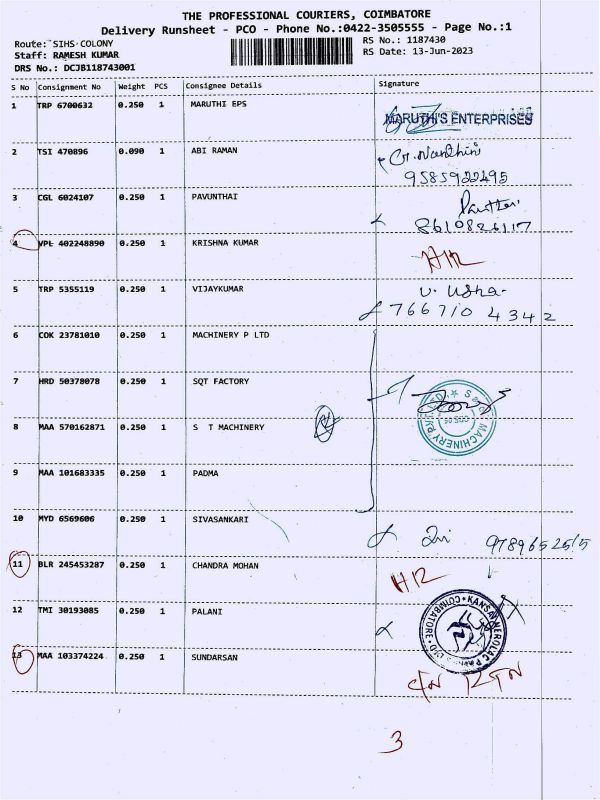 THE PROFESSIONAL COURIERS, COIMBATORE
Delivery Runsheet - PCO - Phone No.:0422-3505555 - Page No.:1
Route: SIHS COLONY
RS No.: 1187430
Staff: RAMESH KUMAR
RS Date: 13-Jun-2023
DRS No.: DCJB118743001
S No Consignment No Weight PCS Consignee Details Signature
1 TRP 6700632 0.250 1 MARUTHI EPS
MARUTHI'S ENTERPRISES
2 TSI 470896 0.090 1 ABI RAMAN G. Nandhini
9585922495
3 CGL 6024107 0.250 1 PAVUNTHAI
8610826117
4 VPL 402248890 0.250 1 KRISHNA KUMAR
5 TRP 5355119 0.250 1 VIJAYKUMAR V. Usha
766710 4342
6 COK 23781010 0.250 1 MACHINERY P LTD
7 HRD 50378078 0.250 1 SQT FACTORY
8 MAA 570162871 0.250 1 S T MACHINERY
MACHINERY
9 MAA 101683335 0.250 1 PADMA
10 MYD 6569606 0.250 1 SIVASANKARI
9789652515
11 BLR 245453287 0.250 1 CHANDRA MOHAN
12 TMI 30193085 0.250 1 PALANI
KANSAI NEROLAC
COIMBATORE
13 MAA 103374224 0.250 1 SUNDARSAN
3